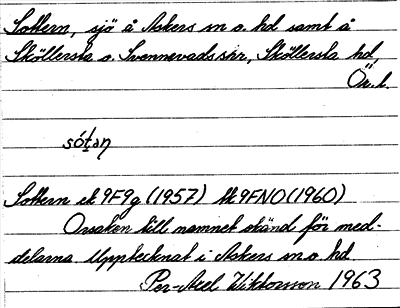 Sottern, sjö å Askers sn o. hd samt å
Sköllersta o. Svennevads snr, Sköllersta hd,
Ör. l.
sót̠ən
Sottern ek 9F9g (1957) tk 9FNO (1960)
Orsaken till namnet okänd för med-
delarna Upptecknat i Askers sn o. hd.
Per-Axel Wiktorsson 1963